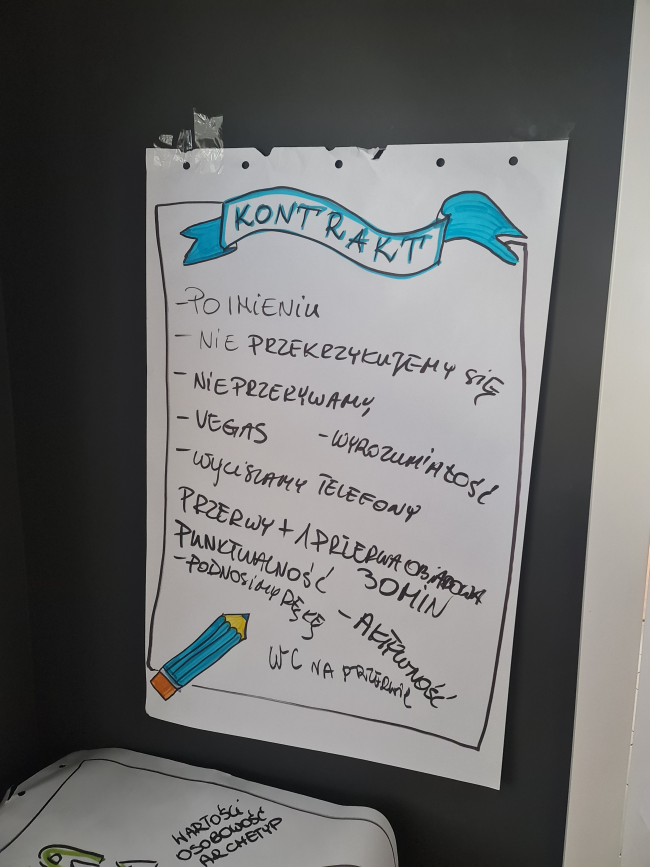 KONTRAKT
- PO IMIENIU
- NIE PRZEKRZYKUJEMY SIĘ
- NIEPRZERYWAMY
- VEGAS - WYROZUMIAŁOŚĆ
- WYCISZAMY TELEFONY
PRZERWY + 1 PRZERWA OBIADOWA
30 MIN
PUNKTUALNOŚĆ
- PODNOSIMY RĘKĘ
- AKTYWNOŚĆ
WC NA PRZERWIE
WARTOŚCI
OSOBOWOŚĆ
ARCHETYP